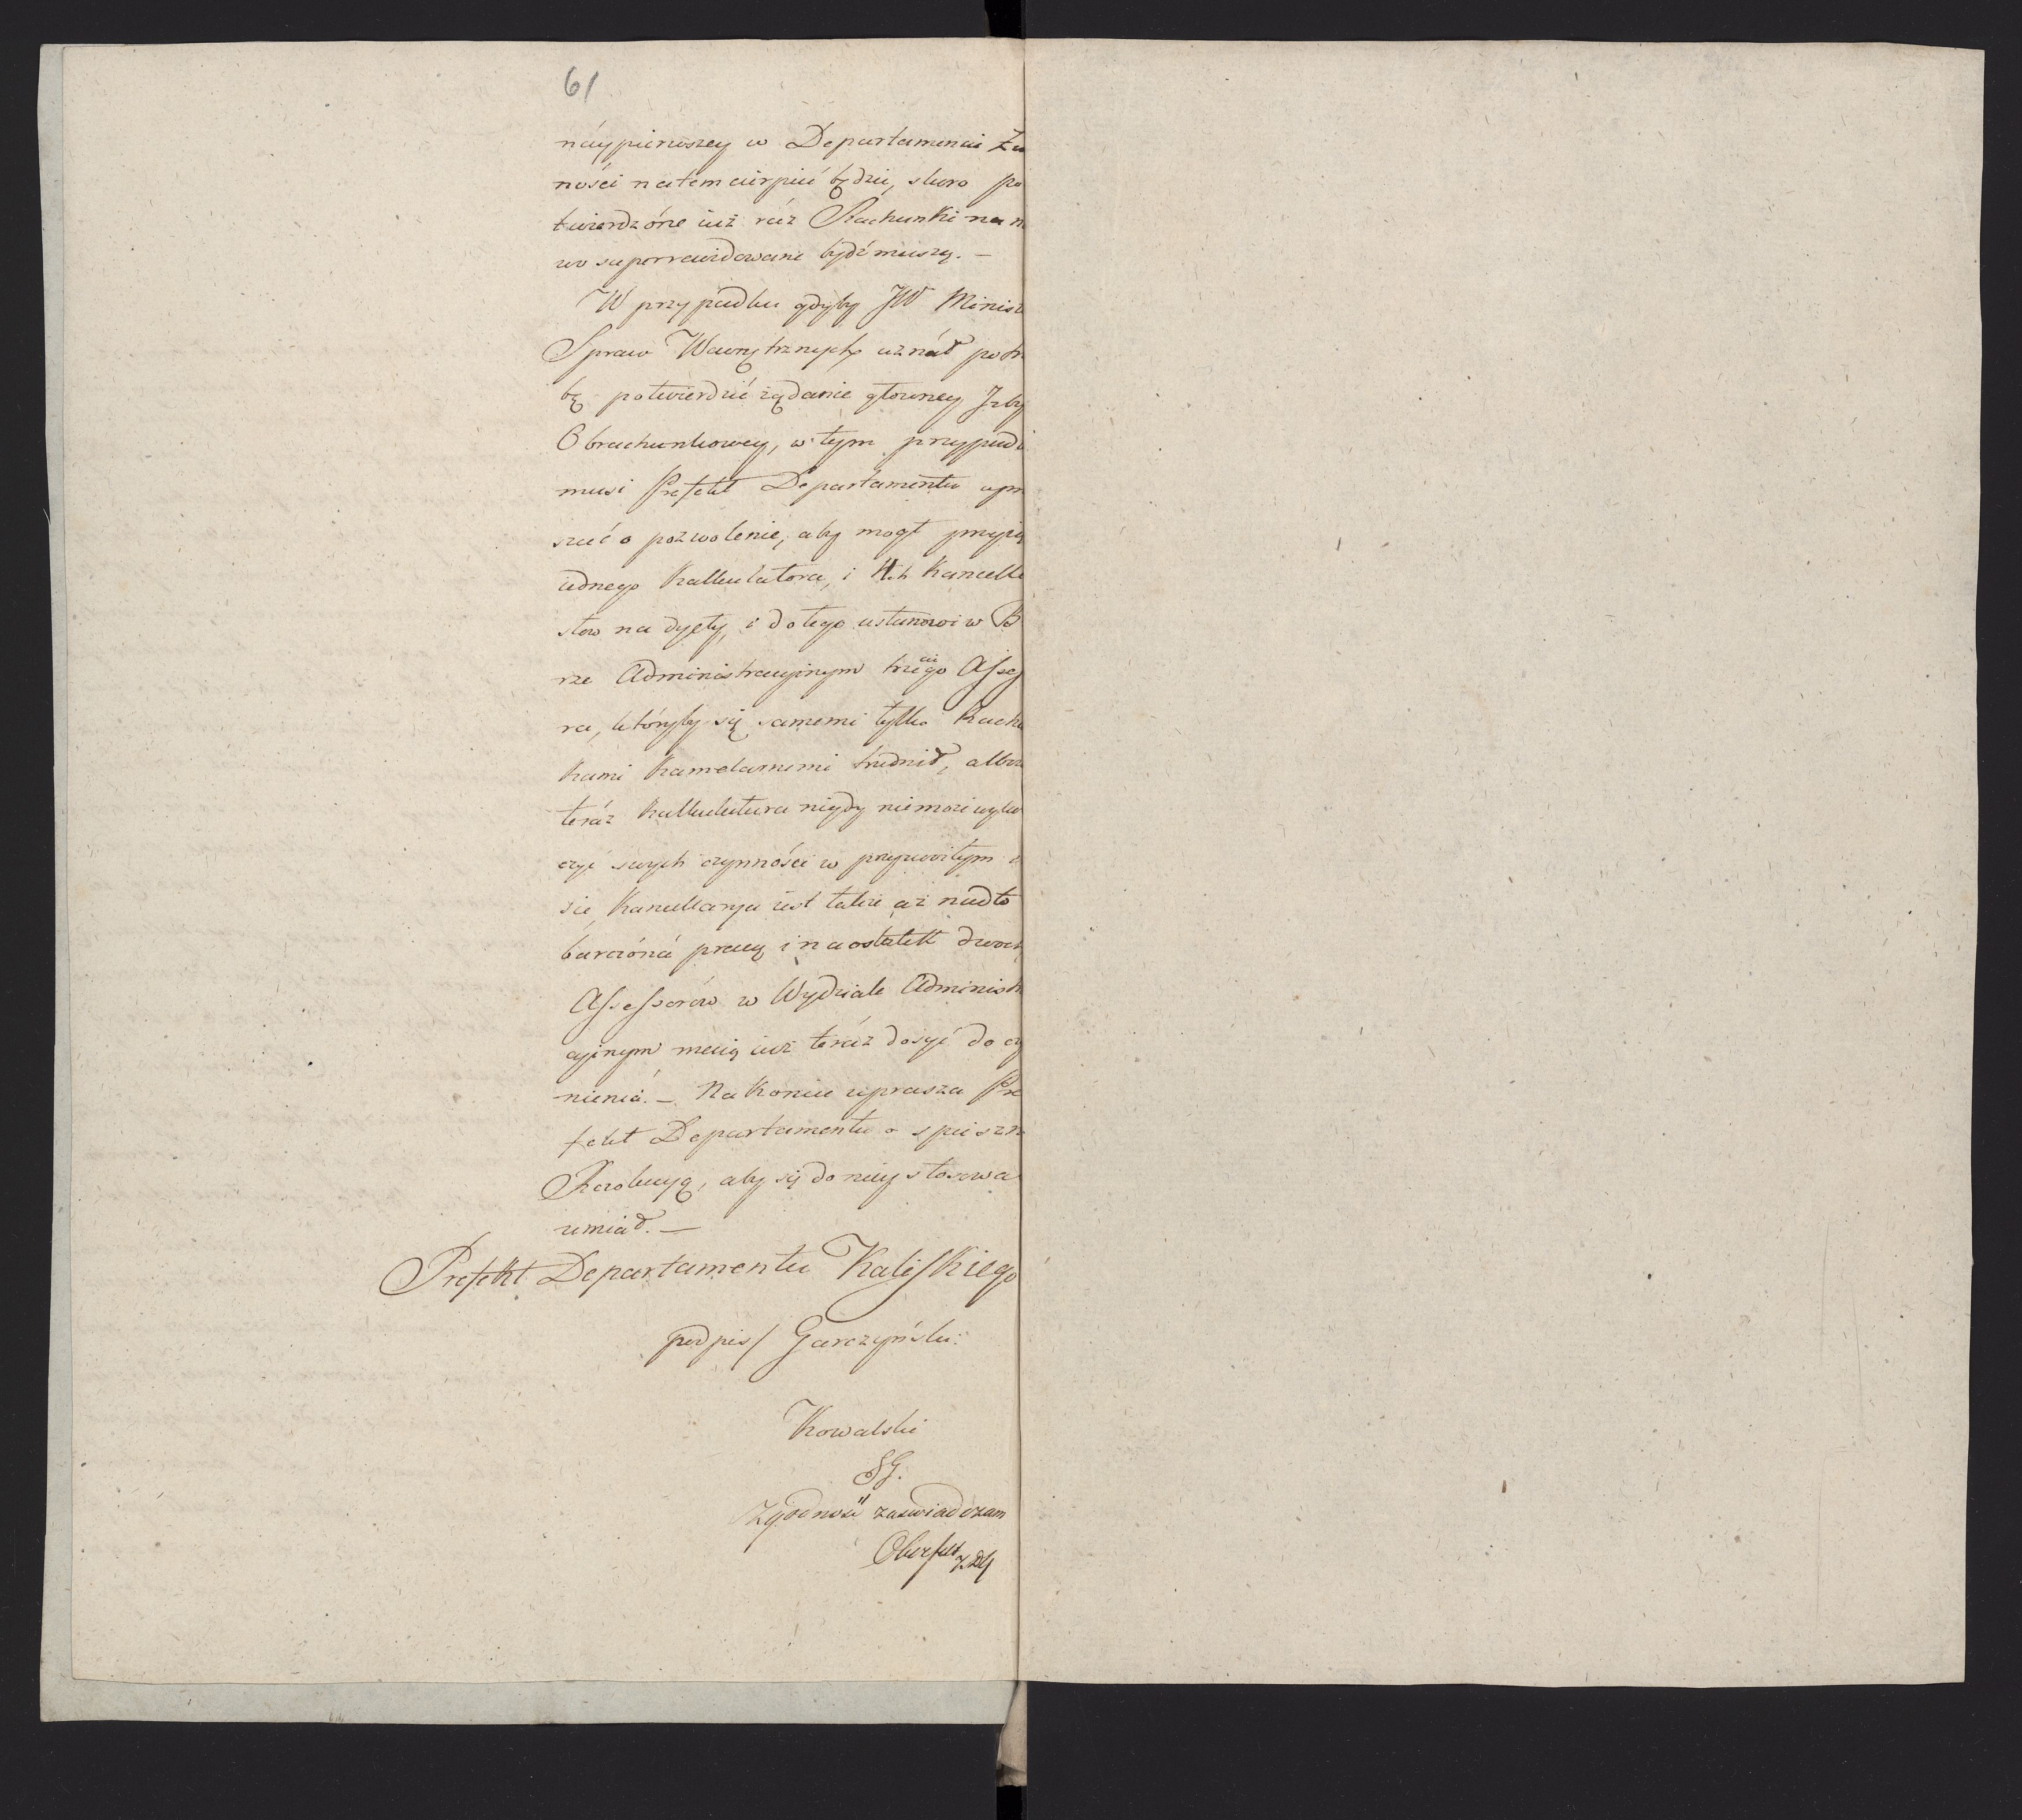 61
náypierwszey w Departamencie Zu
ności natem cierpieć będzie, skoro po
twierdzóne iuż ráz Rachunki na n
wo superrewidowane bydź muszą. —
W przypadku gdyby JW Minist
Spraw Wewnętrznych uznáł potr
bę potwierdzić żądanie głowney Izby
Obrachunkowey, w tym przypad
musi Prefekt Departamentu upr
szać o pozwolenie, aby mogł przyią
iednego Kalkulatora, i 4ch Kancelli
stow na dyety, i do tego ustanowi w B
rze Administracyinym trzeciego Assess
ra, któryby się samemi tylko Rachu
kami Kamelarnemi trudnił, albo
teráz Kalkulatura nigdy nie może wyko
czyć swych czynności w przyzwoitym c
sie, Kancellarya iest także aż nadto
barczóná pracą i na ostatek dwoch
Assessorów w Wydziale Administr
cyinym maią iuż teráz dosyć do czy
nieniá. — Na Koniec uprasza Pre
fekt Departamentu o spieszn
Rezolucyą, aby się do niey stosowa
umiał. —
Prefekt Departamentu Kaliskiego
podpis/ Garczyński.
Kowalski
SG.
Zgodność zaswiadczam